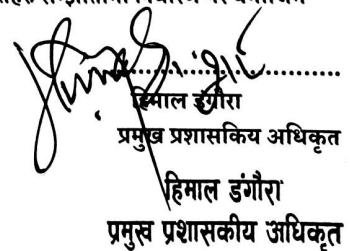 हिमाल डंगौरा
प्रमुख प्रशासकिय अधिकृत
हिमाल डंगौरा
प्रमुख प्रशासकीय अधिकृत